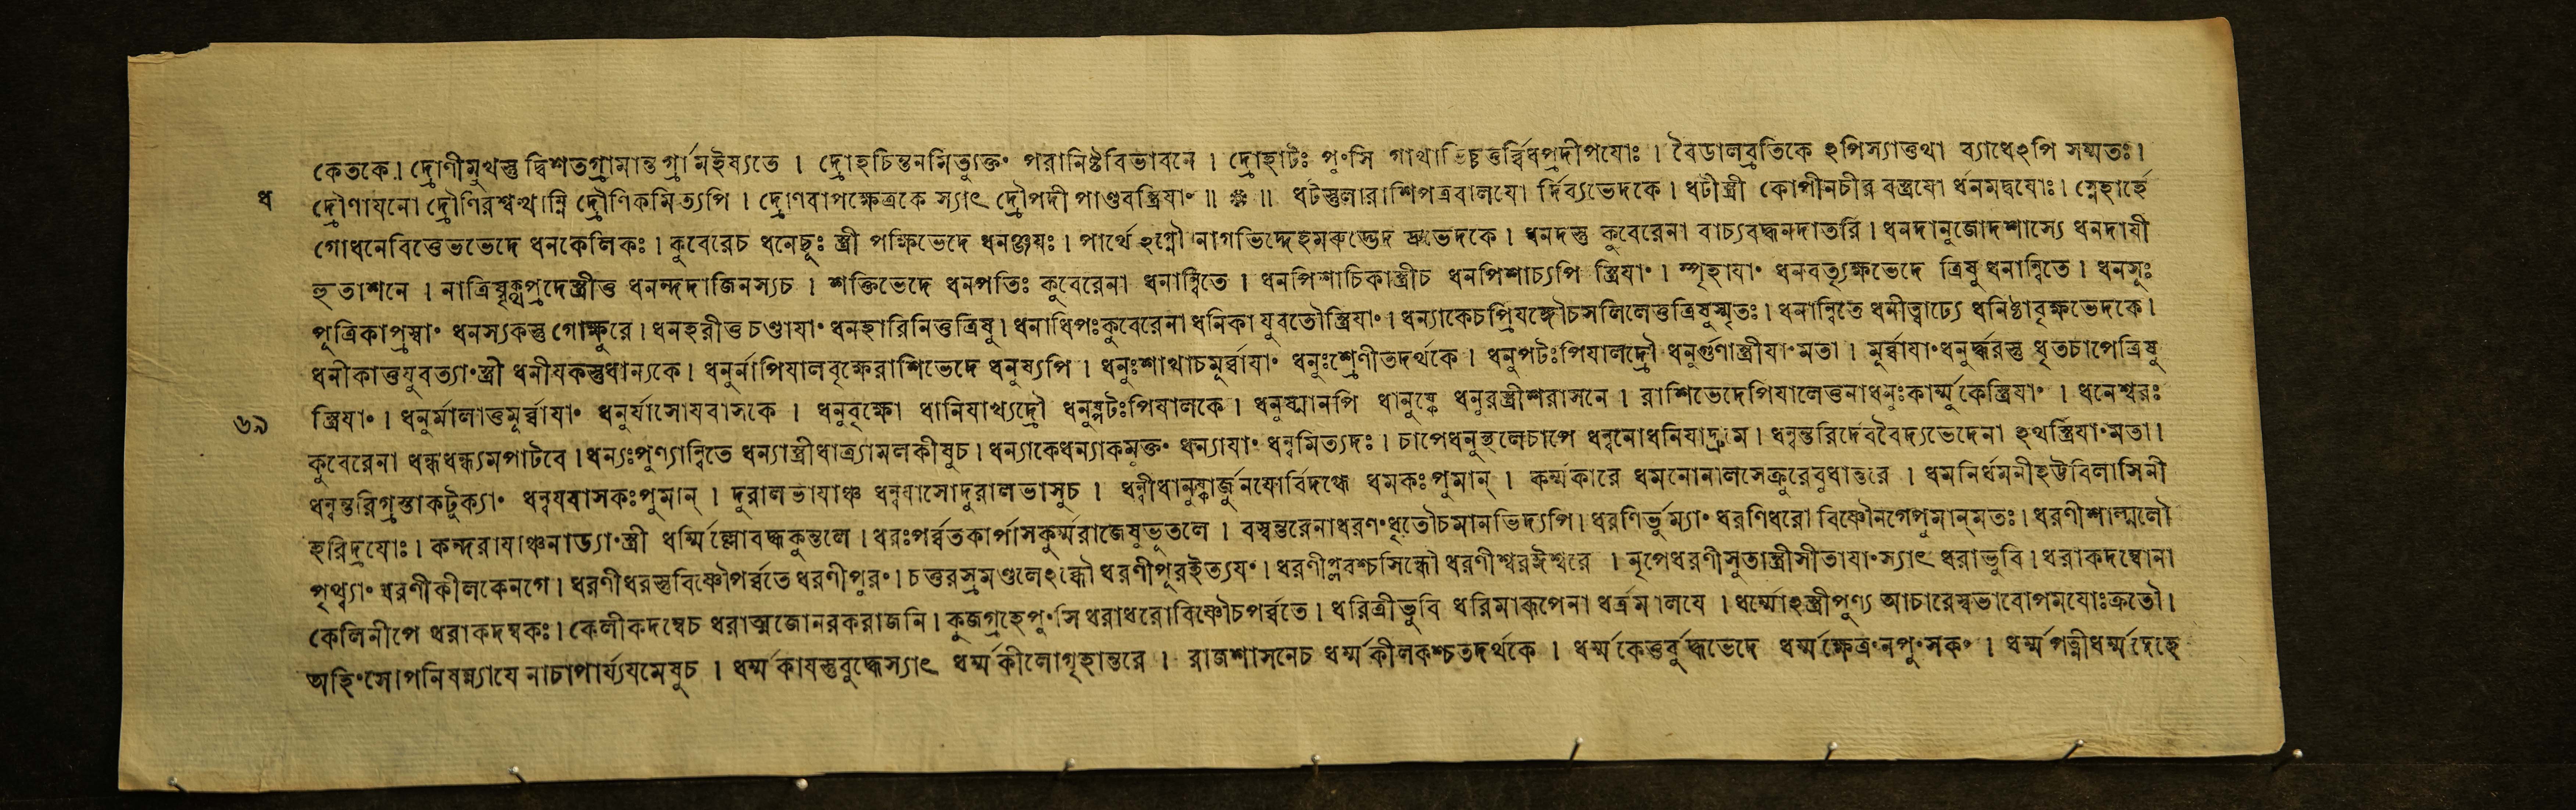 কেতকে। দ্রোণীমুখস্তু দ্বিশতগ্রামান্তর্গ্রামইষ্যতে । দ্রোহচিন্তনমিত্যুক্তং পরানিষ্টবিভাবনে । দ্রোহাটঃ পুংসি গাথাভিদ্ধূর্ত্তবিধপ্রদীপযোঃ । বৈডালব্রতিকে ঽপিস্যাত্তথা ব্যাধেঽপি সম্মতঃ।
ধ দ্রৌণাযনো দ্রৌণিরশ্বত্থাম্নি দ্রৌণিকমিত্যপি । দ্রোণবাপক্ষেত্রকে স্যাৎ দ্রৌপদী পাণ্ডবস্ত্রিযাং ॥ ❁ ॥ ধটস্তুলারাশিপত্রবালযো র্দিব্যভেদকে । ধটীস্ত্রী কোপীনচীর বস্ত্রযো র্ধনমদ্বযোঃ। স্নেহার্হে
গোধনেবিত্তেভভেদে ধনকেলিকঃ। কুবেরেচ ধনেছূঃ স্ত্রী পক্ষিভেদে ধনঞ্জযঃ। পার্থে ঽগ্নৌ নাগভিদ্দেহমরুদ্ভেদ দ্রুভেদকে । ধনদস্তু কুবেরেনা বাচ্যবদ্ধনদাতরি । ধনদানুজোদশাস্যে ধনদাযী
হুতাশনে । নাত্রিষূক্তপ্রদেস্ত্রীত্ত ধনন্দদাজিনস্যচ । শক্তিভেদে ধনপতিঃ কুবেরেনা ধনান্বিতে । ধনপিশাচিকাস্ত্রীচ ধনপিশাচ্যপি স্ত্রিযাং । স্পৃহাযাং ধনবত্যৃক্ষভেদে ত্রিষু ধনান্বিতে । ধনসূঃ
পূত্রিকাপ্রস্বাং ধনস্যকস্তু গোক্ষুরে । ধনহরীত্ত চণ্ডাযাং ধনহারিনিত্তত্রিষু । ধনাধিপঃকুবেরেনা ধনিকা যুবতৌস্ত্রিযাং । ধন্যাকেচপ্রিযঙ্গৌচসলিলেত্তত্রিষুস্মৃতঃ । ধনান্বিতে ধনীত্বাঢ্যে ধনিষ্ঠাবৃক্ষভেদকে।
ধনীকাত্তযুবত্যাংস্ত্রী ধনীযকস্তুধান্যকে । ধনুর্নাপিযালবৃক্ষেরাশিভেদে ধনুষ্যপি । ধনুঃশাখাচমূর্ব্বাযাং ধনুঃশ্রেণীতদর্থকে । ধনুপটঃপিযালদ্রৌ ধনুর্গুণাস্ত্রীযাংমতা । মূর্ব্বাযাংধনুর্দ্ধরস্তু ধৃতচাপেত্রিষু
৬৯ স্ত্রিযাং । ধনুর্মালাত্তমূর্ব্বাযাং ধনুর্যাসোযবাসকে । ধনুবৃক্ষো ধানিযাখ্যদ্রৌ ধনুষ্পটঃপিযালকে । ধনুষ্মানপি ধানুষ্কে ধনুরস্ত্রীশরাসনে । রাশিভেদেপিযালেত্তনাধনুঃকার্ম্মুকেস্ত্রিযাং । ধনেশ্বরঃ
কুবেরেনা ধন্ধধন্ধ্যমপাটবে । ধন্যঃপুণ্যান্বিতে ধন্যাস্ত্রীধাত্র্যামলকীষুচ । ধন্যাকেধন্যাকমুক্তং ধন্যাযাং ধন্বমিত্যদঃ। চাপেধনুস্থলেচাপে ধন্বনোধনিযাদ্রুমে । ধন্বন্তরির্দেববৈদ্যভেদেনা ঽথস্ত্রিযাংমতা ।
ধন্বন্তরিগ্রস্তাকটুক্যাং ধন্বযবাসকঃপুমান্ । দুরালভাযাঞ্চ ধন্বযাসোদুরালভাসুচ । ধন্বীধানুষ্কার্জুনযোর্বিদগ্ধে ধমকঃপুমান্ । কর্ম্মকারে ধমনোনালসেক্রুরেবুধাত্তরে । ধমনির্ধমনীহট্টবিলাসিনী
হরিদ্রযোঃ। কন্দরাযাঞ্চনাড্যাংস্ত্রী ধম্মিল্লোবদ্ধকুন্তলে । ধরঃপর্ব্বতকার্পাসকুর্ম্মরাজেষুভূতলে । বস্বন্তরেনাধরণংধৃতৌচমানভিদ্যপি । ধরণির্ভুম্যাং ধরণিধরো বিষ্ণৌনগেপুমান্মতঃ। ধরণীশাল্মলৌ
পৃথ্ব্যাং ধরণীকীলকেনগে । ধরণীধরস্তুবিষ্ণৌপর্ব্বতে ধরণীপুরং । চত্তরস্রমণ্ডলেঽব্ধৌ ধরণীপূরইত্যযং । ধরণীপ্লবশ্চসিন্ধৌ ধরণীশ্বরঈশ্বরে । নৃপেধরণীসুতাস্ত্রীসীতাযাংস্যাৎ ধরাভুবি । ধরাকদম্বোনা
কেলিনীপে ধরাকদম্বকঃ। কেলীকদম্বেচ ধরাত্মজোনরকরাজনি । কুজগ্রহেপুংসি ধরাধরোবিষ্ণৌচপর্ব্বতে । ধরিত্রীভুবি ধরিমারূপেনা ধর্ত্রমালযে । ধর্ম্মোঽস্ত্রীপুণ্য আচারেস্বভাবোপমযোঃক্রতৌ ।
অহিংসোপনিষন্ন্যাযে নাচাপার্য্যযমেষুচ । ধর্ম্মকাযস্তুবুদ্ধেস্যাৎ ধর্ম্মকীলোগৃহান্তরে । রাজশাসনেচ ধর্ম্মকীলকশ্চতদর্থকে । ধর্ম্মকেত্তর্বুদ্ধভেদে ধর্ম্মক্ষেত্রংনপুংসকং । ধর্ম্মপত্নীধর্ম্মদেহে